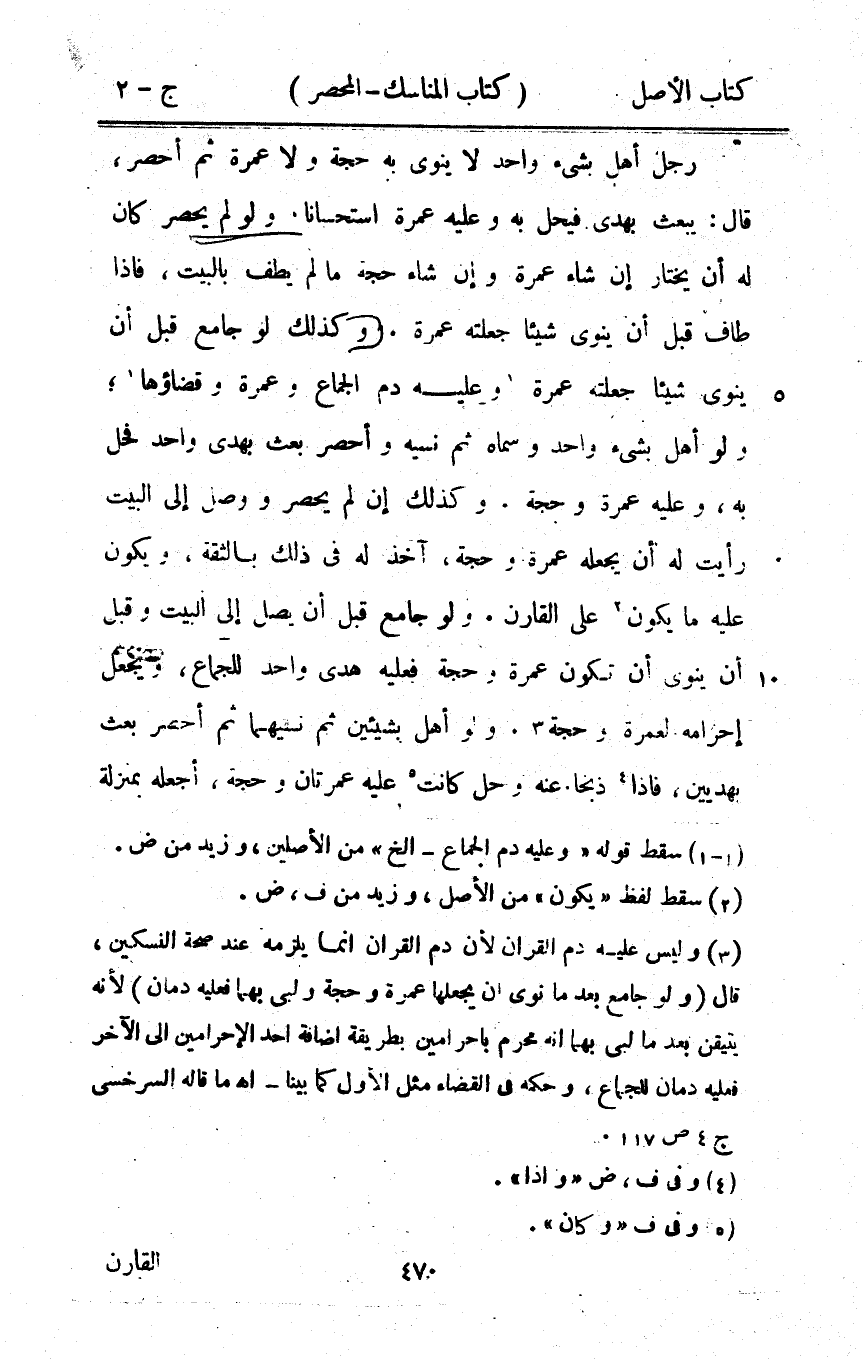 كتاب الأصل ( كتاب المناسك - المحصر ) ج - ٢
رجل أهل بشىء واحد لا ينوى به حجة و لا عمرة ثم أحصر ،
قال : يبعث بهدى فيحل به و عليه عمرة استحسانا . و لو لم يحصر كان
له أن يختار إن شاء عمرة و إن شاء حجة ما لم يطف بالبيت ، فاذا
طاف قبل أن ينوى شيئا جعلته عمرة . و كذلك لو جامع قبل أن
٥ ينوى شيئا جعلته عمرة ١و عليـــه دم الجماع و عمرة و قضاؤها١ ؛
و لو أهل بشىء واحد و سماه ثم نسيه و أحصر بعث بهدى واحد فحل
به ، و عليه عمرة و حجة . و كذلك إن لم يحصر و وصل إلى البيت
رأيت له أن يجعله عمرة و حجة ، آخذ له فى ذلك بالثقة ، و يكون
عليه ما يكون٢ على القارن . و لو جامع قبل أن يصل إلى البيت و قبل
١٠ أن ينوى أن تكون عمرة و حجة فعليه هدى واحد للجماع ، و يجعل
إحرامه لعمرة و حجة٣ . و لو أهل بشيئين ثم نسيهما ثم أحصر بعث
بهديين ، فاذا٤ ذبحا عنه و حل كانت٥ عليه عمرتان و حجة ، أجعله بمنزلة
(١-١) سقط قوله « و عليه دم الجماع - الخ » من الأصلين ، و زيد من ض .
(٢) سقط لفظ « يكون » من الأصل ، و زيد من ف ، ض .
(٣) و ليس عليه دم القران لأن دم القران انما يلزمه عند صحة النسكين ،
قال ( و لو جامع بعد ما نوى ان يجعلها عمرة و حجة و لبى بهما فعليه دمان ) لأنه
يتيقن بعد ما لبى بهما انه محرم باحرامين بطريقة اضافة احد الإحرامين الى الآخر
فعليه دمان للجماع ، و حكمه فى القضاء مثل الأول كما بينا - اه ما قاله السرخسى
ج ٤ ص ١١٧ .
(٤) و فى ف ، ض « و اذا » .
(٥ و فى ف « و كان » .
٤٧٠ القارن